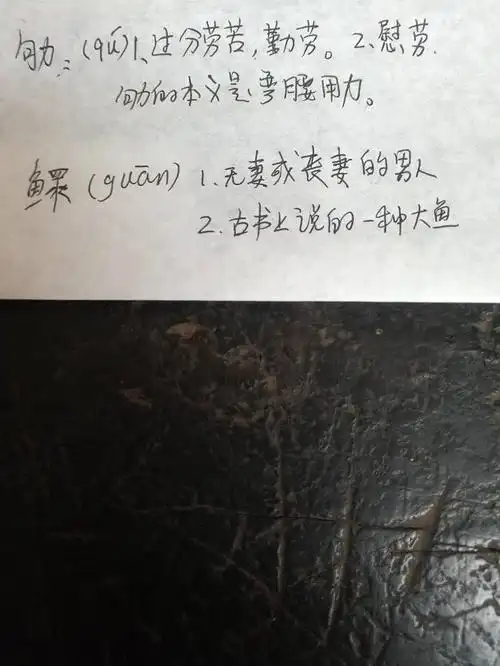 劬：(qú)1、过分劳苦，勤劳。2、慰劳.
劬的本义是弯腰用力。
鳏(guān) 1.无妻或丧妻的男人
2.古书上说的一种大鱼